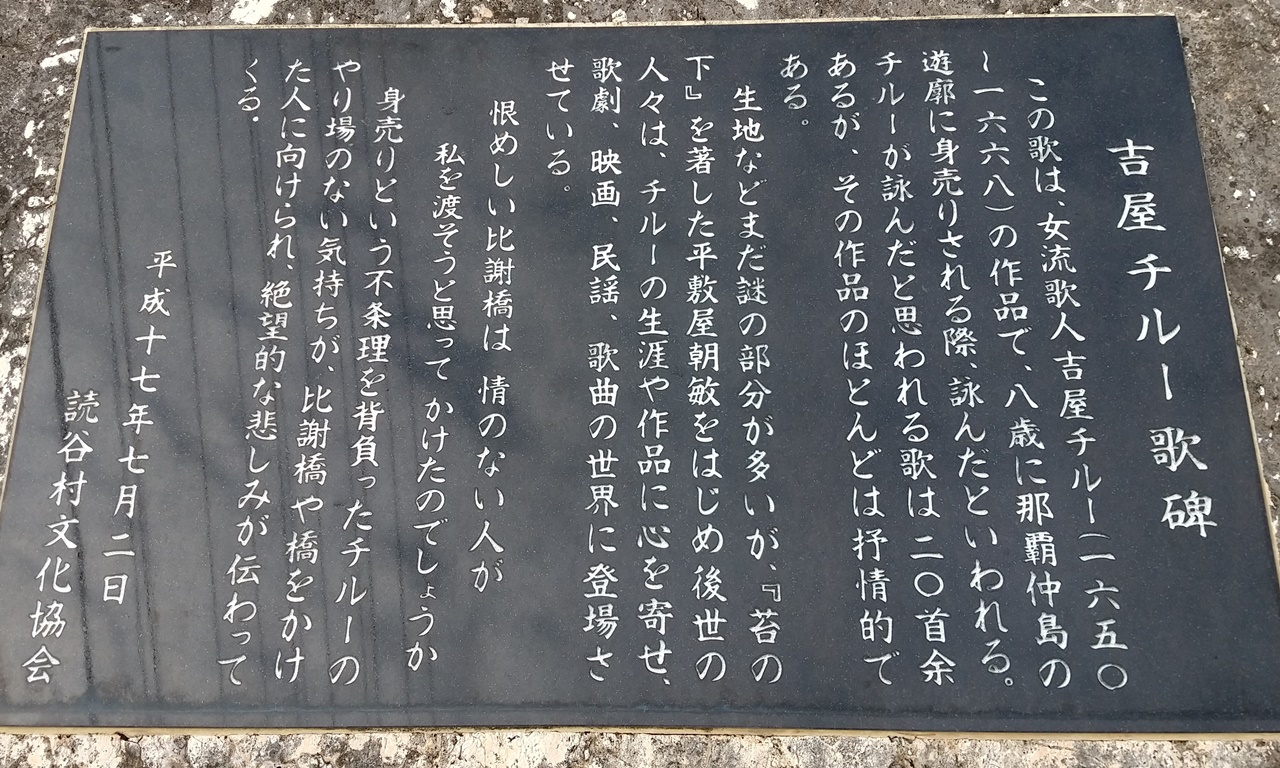 吉屋チルー歌碑
この歌は、女流歌人吉屋チルー(一六五〇
~一六六八)の作品で、八歳に那覇仲島の
遊廓に身売りされる際、詠んだといわれる。
チルーが詠んだと思われる歌は二〇首余
あるが、その作品のほとんどは抒情的で
ある。
生地などまだ謎の部分が多いが、『苔の
下』を著した平敷屋朝敏をはじめ後世の
人々は、チルーの生涯や作品に心を寄せ、
歌劇、映画、民謡、歌曲の世界に登場さ
せている。
恨めしい比謝橋は 情のない人が
私を渡そうと思って かけたのでしょうか
身売りという不条理を背負ったチルーの
やり場のない気持ちが、比謝橋や橋をかけ
た人に向けられ、絶望的な悲しみが伝わって
くる.
平成十七年七月二日
読谷村文化協会